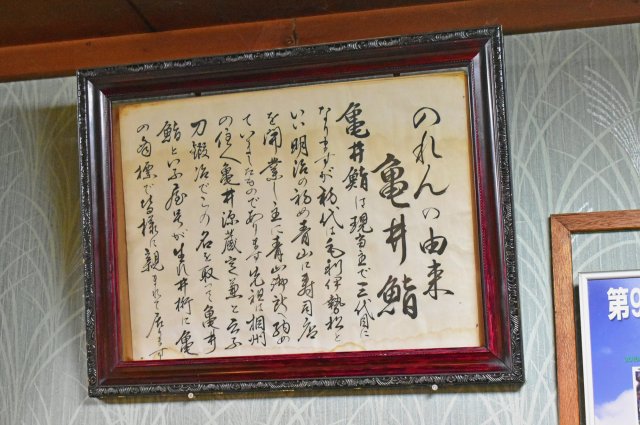 のれんの由来
亀井鮨
亀井鮨は現当主で三代目に
なりますが初代は毛利伊勢松と
いい明治の初め青山に寿司店
を開業し主に青山御所納め
ていましたものであります先祖は相州
の住人亀井源蔵定兼と云ふ
刀鍛冶でこの名を取って亀井
鮨といふ屋号が生れ井桁に亀
の商標で皆様に親まれて居ます
第9